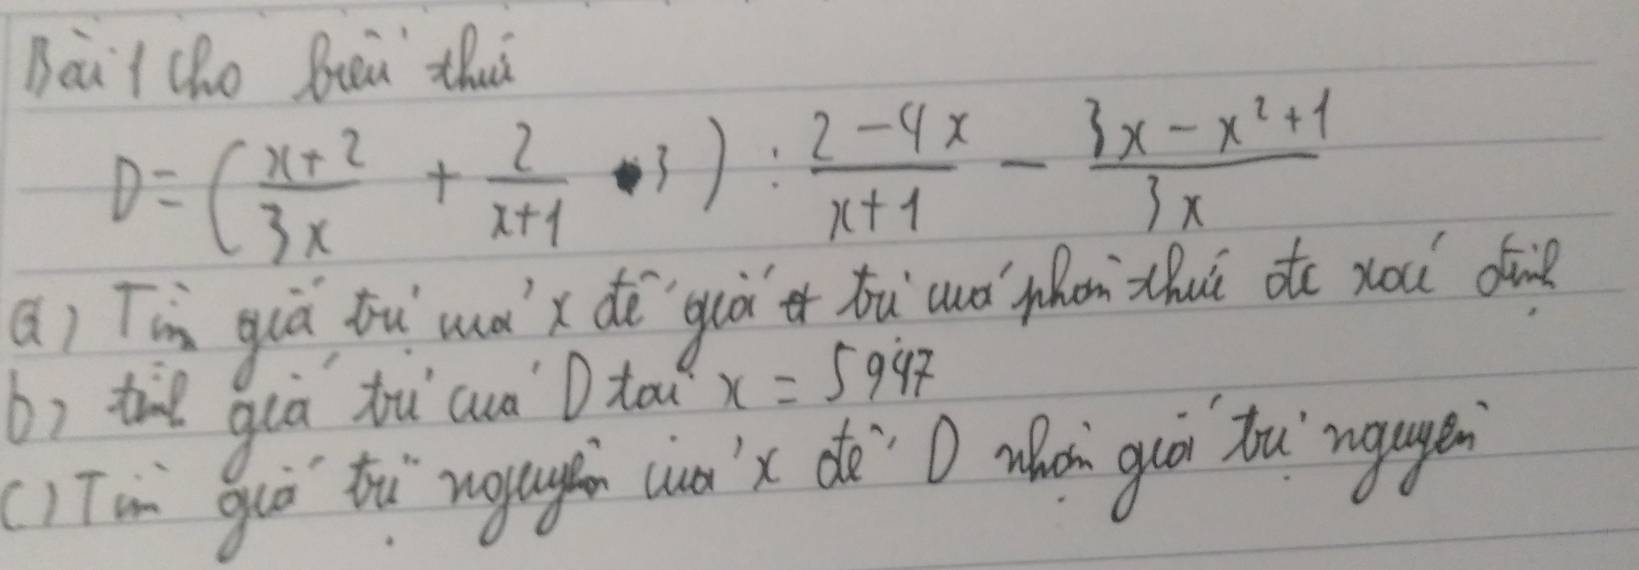 Bài 1 Cho biểu thức
D = ( \frac{x+2}{3x} + \frac{2}{x+1} - 3 ) : \frac{2-4x}{x+1} - \frac{3x-x²+1}{3x}
a) Tìm giá trị của x để giá trị của phân thức đc xác định
b) tính giá trị của D tại x = 5947
c) Tìm giá trị nguyên của x để D nhận giá trị nguyên